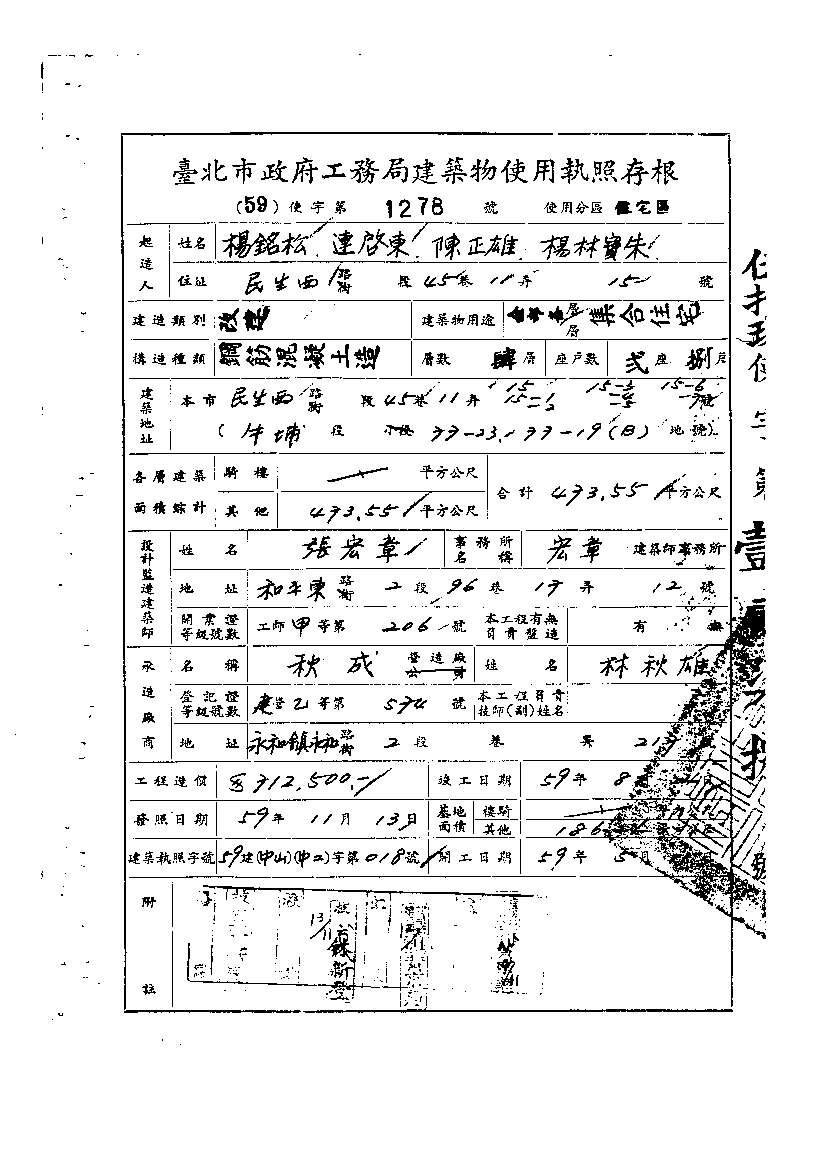 臺北市政府工務局建築物使用執照存根
(59)使字第 1278 號 使用分區 住宅區
起造人 姓名 楊銘松 連啓東 陳正雄 楊林寶朱
住址 民生西 路街 段 45 巷 11 弄 15 號
建造類別 改建 建築物用途 層層 集合住宅
構造種類 鋼筋混凝土造 層數 肆層 座戶數 弍座 捌戶
建築地址 本市 民生西 路街 段 45 巷 11 弄 15 15-1 15-6 號
(牛埔 段 小段 33-23, 33-19(B) 地號)
各層建築面積綜計 騎樓 平方公尺 合計 473.55 平方公尺
其他 473.55 平方公尺
設計監造建築師 姓名 張宏章 事務所名稱 宏章 建築師事務所
地址 和平東 路街 2 段 96 巷 17 弄 12 號
開業證等級號數 工師甲等第 206 號 本工程有無負責監造 有 無
承造廠商 名稱 秋成 營造廠公司 姓名 林秋雄
登記證等級號數 建營乙等第 574 號 本工程負責技師(副)姓名
地址 永和鎮永和 路街 2 段 巷 弄 21
工程造價 312,500.- 竣工日期 59年 8
發照日期 59年 11月 13日 基地面積 樓騎
其他 186
建築執照字號 59建(中山)(中工)字第018號 開工日期 59年 5月
附註
13/11